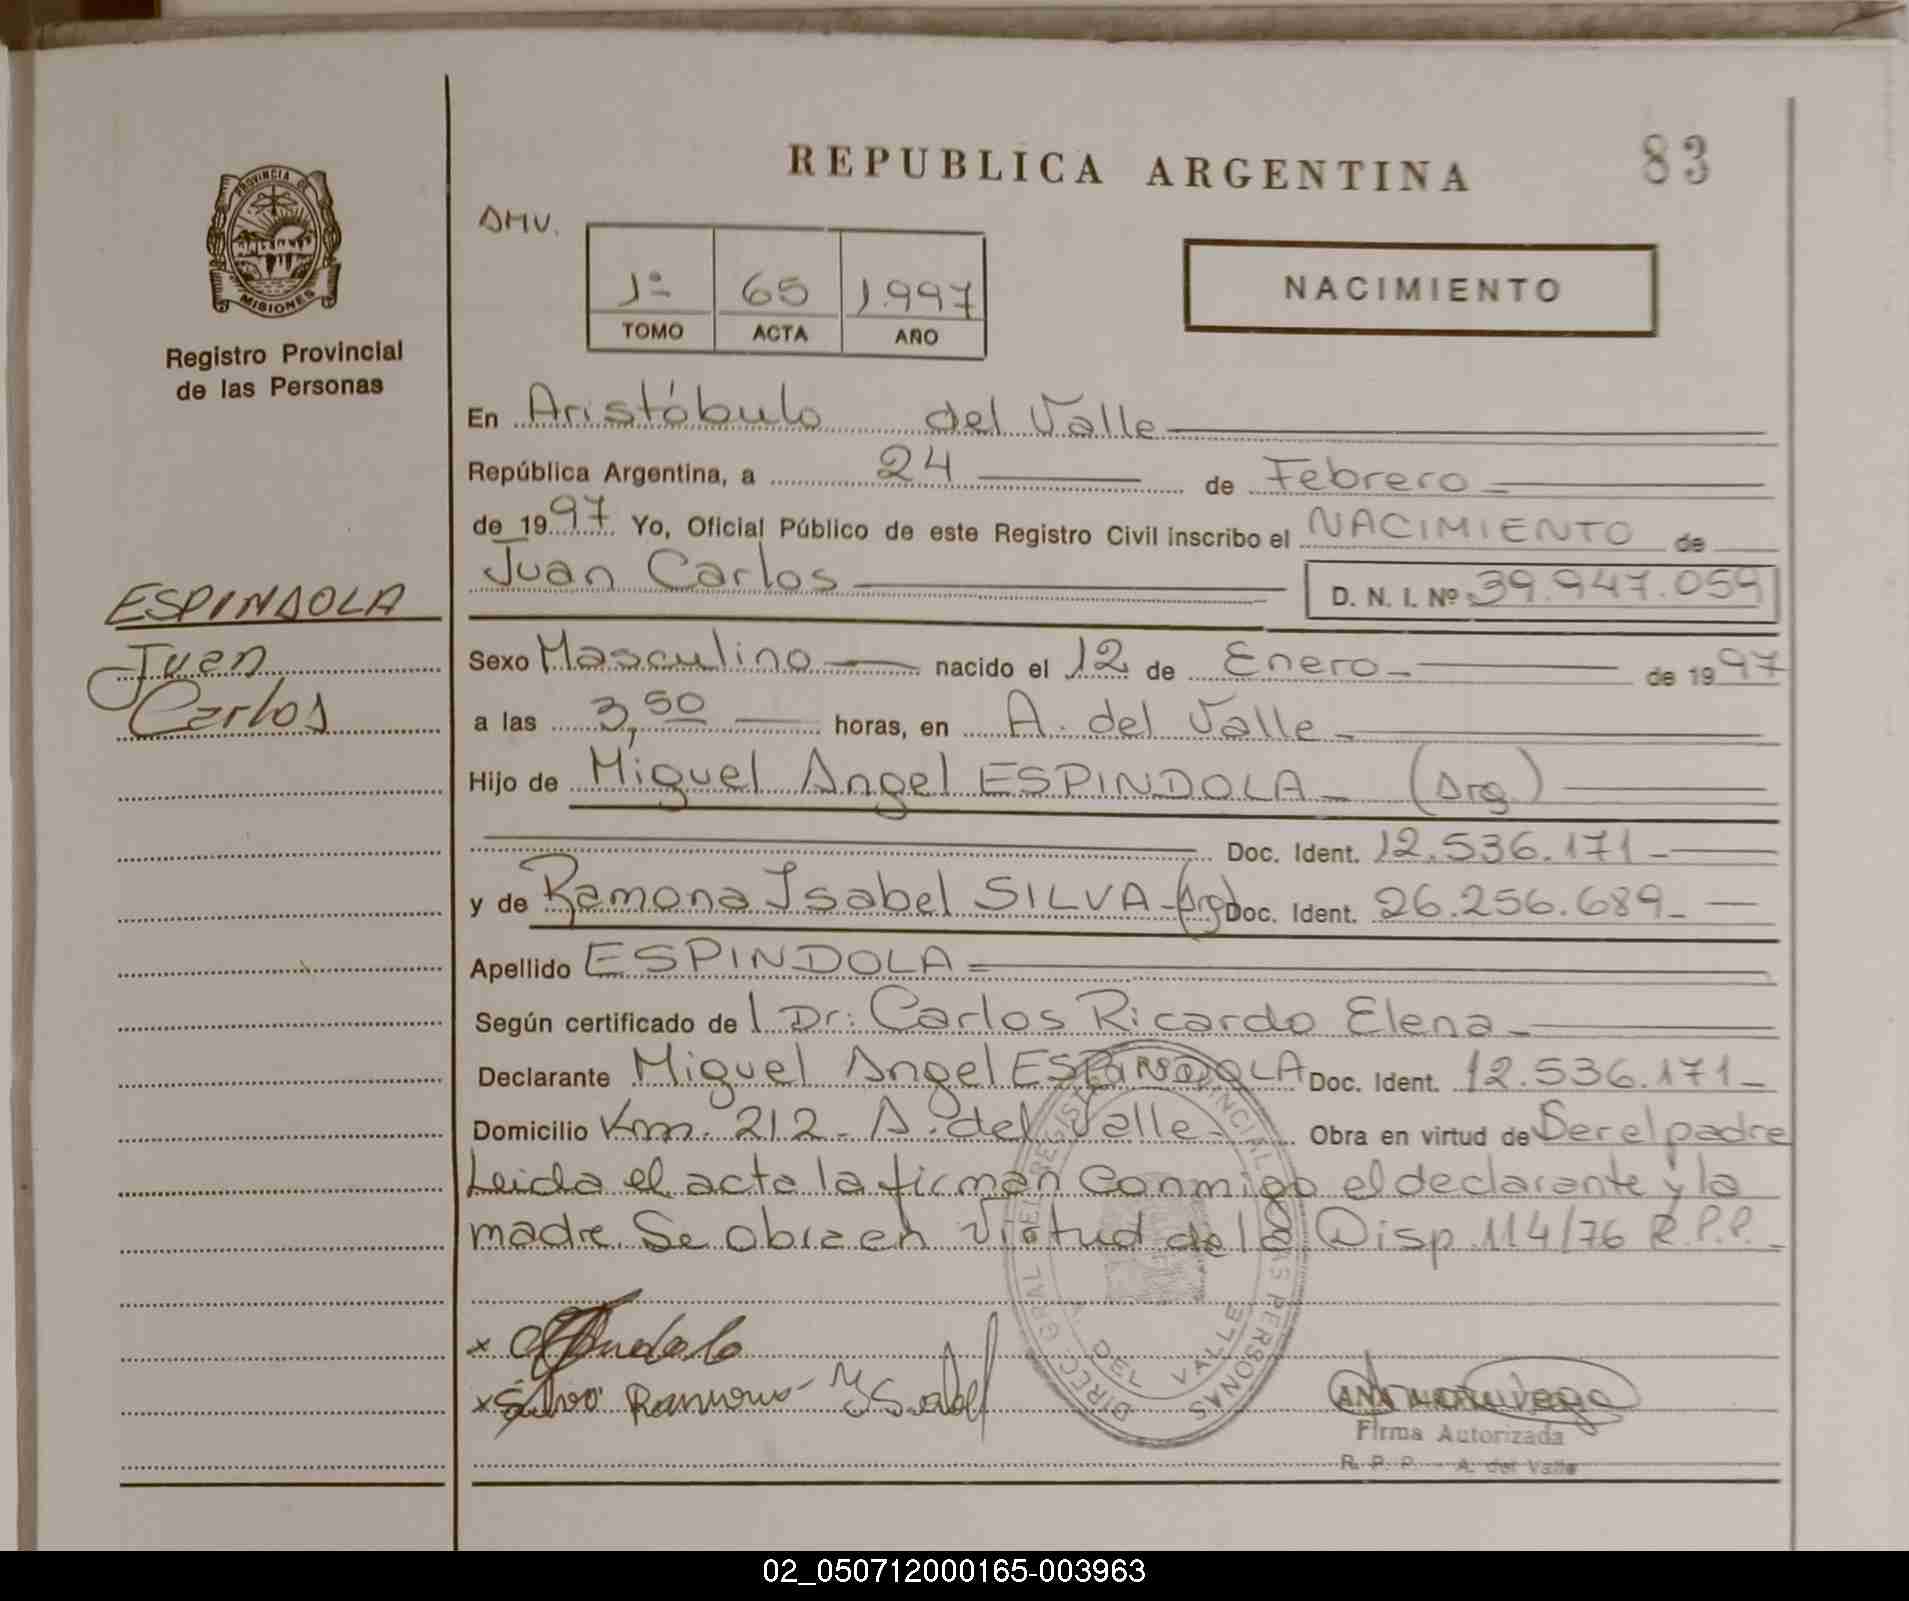 REPUBLICA ARGENTINA
83
PROVINCIA DE
MISIONES
Registro Provincial
de las Personas
AMV.
1º 65 1.997
TOMO ACTA AÑO
NACIMIENTO
En Aristóbulo del Valle
República Argentina, a 24 de Febrero
de 1997 Yo, Oficial Público de este Registro Civil inscribo el NACIMIENTO de
Juan Carlos D. N. I. Nº 39.947.059
ESPINDOLA
Juan
Carlos
Sexo Masculino nacido el 12 de Enero de 1997
a las 3,50 horas, en A. del Valle
Hijo de Miguel Angel ESPINDOLA (Arg.)
Doc. Ident. 12.536.171
y de Ramona Isabel SILVA (Arg) Doc. Ident. 26.256.689
Apellido ESPINDOLA
Según certificado del Dr: Carlos Ricardo Elena
Declarante Miguel Angel ESPINDOLA Doc. Ident. 12.536.171
Domicilio Km. 212 - A. del Valle Obra en virtud de Ser el padre
Leida el acta la firman conmigo el declarante y la
madre. Se obra en virtud de la Disp. 114/76 R.P.P.
DIREC. GRAL. DEL REGISTRO PROVINCIAL DE LAS PERSONAS
A. DEL VALLE
x
x Silva Ramona Ysabel
Firma Autorizada
R. P. P. - A. del Valle
02_050712000165-003963